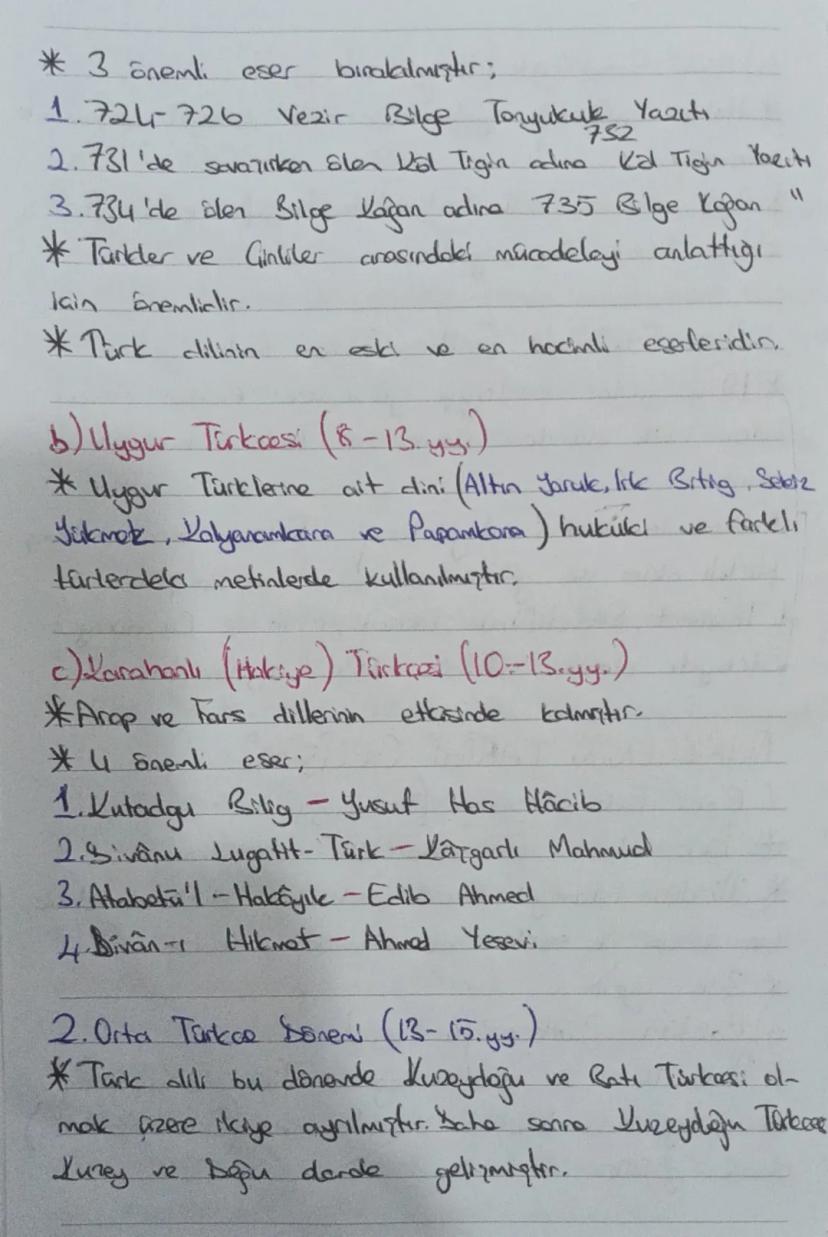 * 3 önemli eser bırakılmıştır;
1. 724-726 Vezir Bilge Tonyukuk Yazıtı
2. 731'de savaşırken ölen Kül Tigin adına 732 Kül Tigin Yazıtı
3. 734'de ölen Bilge Kağan adına 735 Bilge Kağan "
* Türkler ve Çinliler arasındaki mücadeleyi anlattığı
için önemlidir.
* Türk dilinin en eski ve en hacimli eserleridir.
b) Uygur Türkçesi (8-13. yy.)
* Uygur Türklerine ait dini (Altın Yaruk, Irk Bitig, Sekiz
Yükmek, Kalyanamkara ve Papamkara) hukuki ve farklı
türlerdeki metinlerde kullanılmıştır.
c) Karahanlı (Hakiye) Türkçesi (10-13. yy.)
* Arap ve Fars dillerinin etkisinde kalmıştır.
* 4 önemli eser;
1. Kutadgu Bilig - Yusuf Has Hâcib
2. Divânu Lugatit-Türk - Kâşgarlı Mahmud
3. Atabetü'l-Hakâyık - Edib Ahmed
4. Divân-ı Hikmet - Ahmed Yesevi
2. Orta Türkçe Dönemi (13-15. yy.)
* Türk dili bu dönemde Kuzeydoğu ve Batı Türkçesi ol-
mak üzere ikiye ayrılmıştır. Daha sonra Kuzeydoğu Türkçesi
Kuzey ve Doğu olarak gelişmiştir.